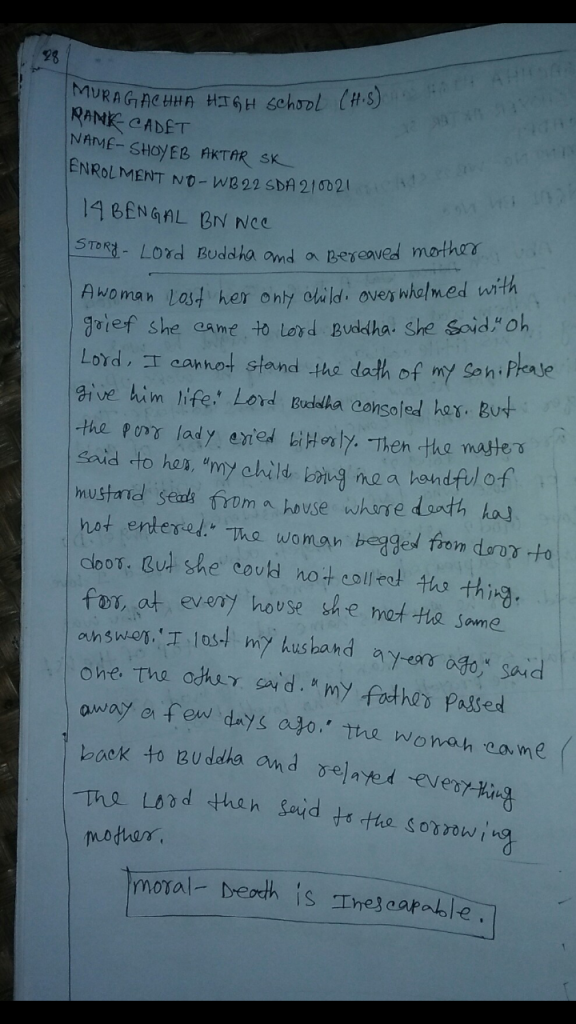 28
MURAGACHHA HIGH School (H.S)
RANK- CADET
NAME- SHOYEB AKTAR SK
ENROLMENT NO- WB22SDA210021
14 BENGAL BN NCC
STORY- Lord Buddha and a Bereaved mother
A woman lost her only child. overwhelmed with
grief she came to Lord Buddha. she said." Oh
Lord, I cannot stand the dath of my son. Please
give him life." Lord Buddha consoled her. But
the poor lady cried bitterly. Then the master
said to her, "my child bring me a handful of
mustard seeds from a house where death has
not entered." The woman begged from door to
door. But she could not collect the thing.
for, at every house she met the same
answer. "I lost my husband a year ago," said
one. The other said. "my father passed
away a few days ago." The woman came
back to Buddha and relayed everything
The Lord then said to the sorrowing
mother.
Moral- Death is Inescapable.